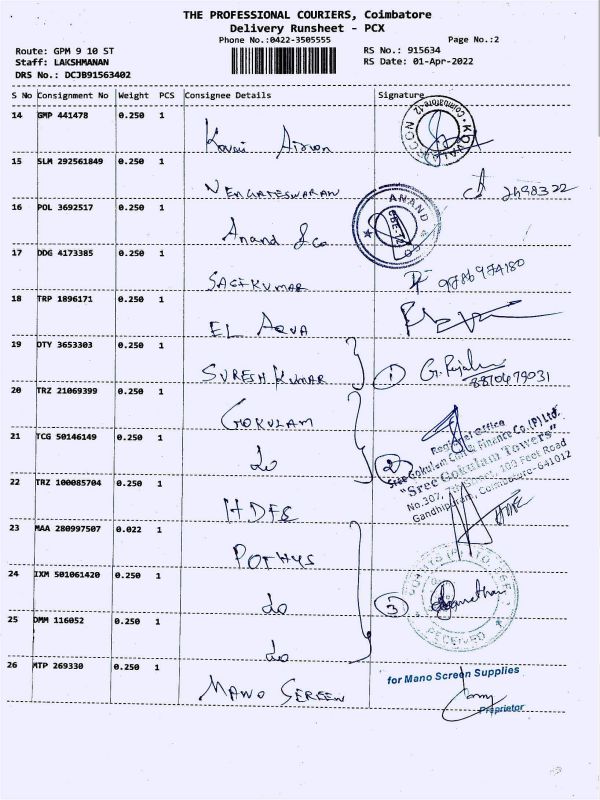 THE PROFESSIONAL COURIERS, Coimbatore
Delivery Runsheet - PCX
Phone No.:0422-3505555
Page No.:2
Route: GPM 9 10 ST
Staff: LAKSHMANAN
DRS No.: DCJB91563402
RS No.: 915634
RS Date: 01-Apr-2022
S No Consignment No Weight PCS Consignee Details Signature
14 GMP 441478 0.250 1
Coimbatore-12
15 SLM 292561849 0.250 1
VENGATESWARAN 2698322
16 POL 3692517 0.250 1
Anand & Co ANAND & CO
17 DDG 4173385 0.250 1
SASIKUMAR 9786974180
18 TRP 1896171 0.250 1
EL AQUA
19 OTY 3653303 0.250 1
SURESH KUMAR 1 8870479031
20 TRZ 21069399 0.250 1
GOKULAM
Regional Office
21 TCG 50146149 0.250 1
Do 2
Sree Gokulam Chit & Finance Co.(P) Ltd.
"Sree Gokulam Towers"
No.307, 100 Feet Road
Gandhipuram, Coimbatore-641012
22 TRZ 100085704 0.250 1
HDFS
23 MAA 280997507 0.022 1
POTHYS
24 IXM 501061420 0.250 1
Do 3
25 DMM 116052 0.250 1
Do RECEIVED
26 MTP 269330 0.250 1
MANO SCREEN
for Mano Screen Supplies
Proprietor